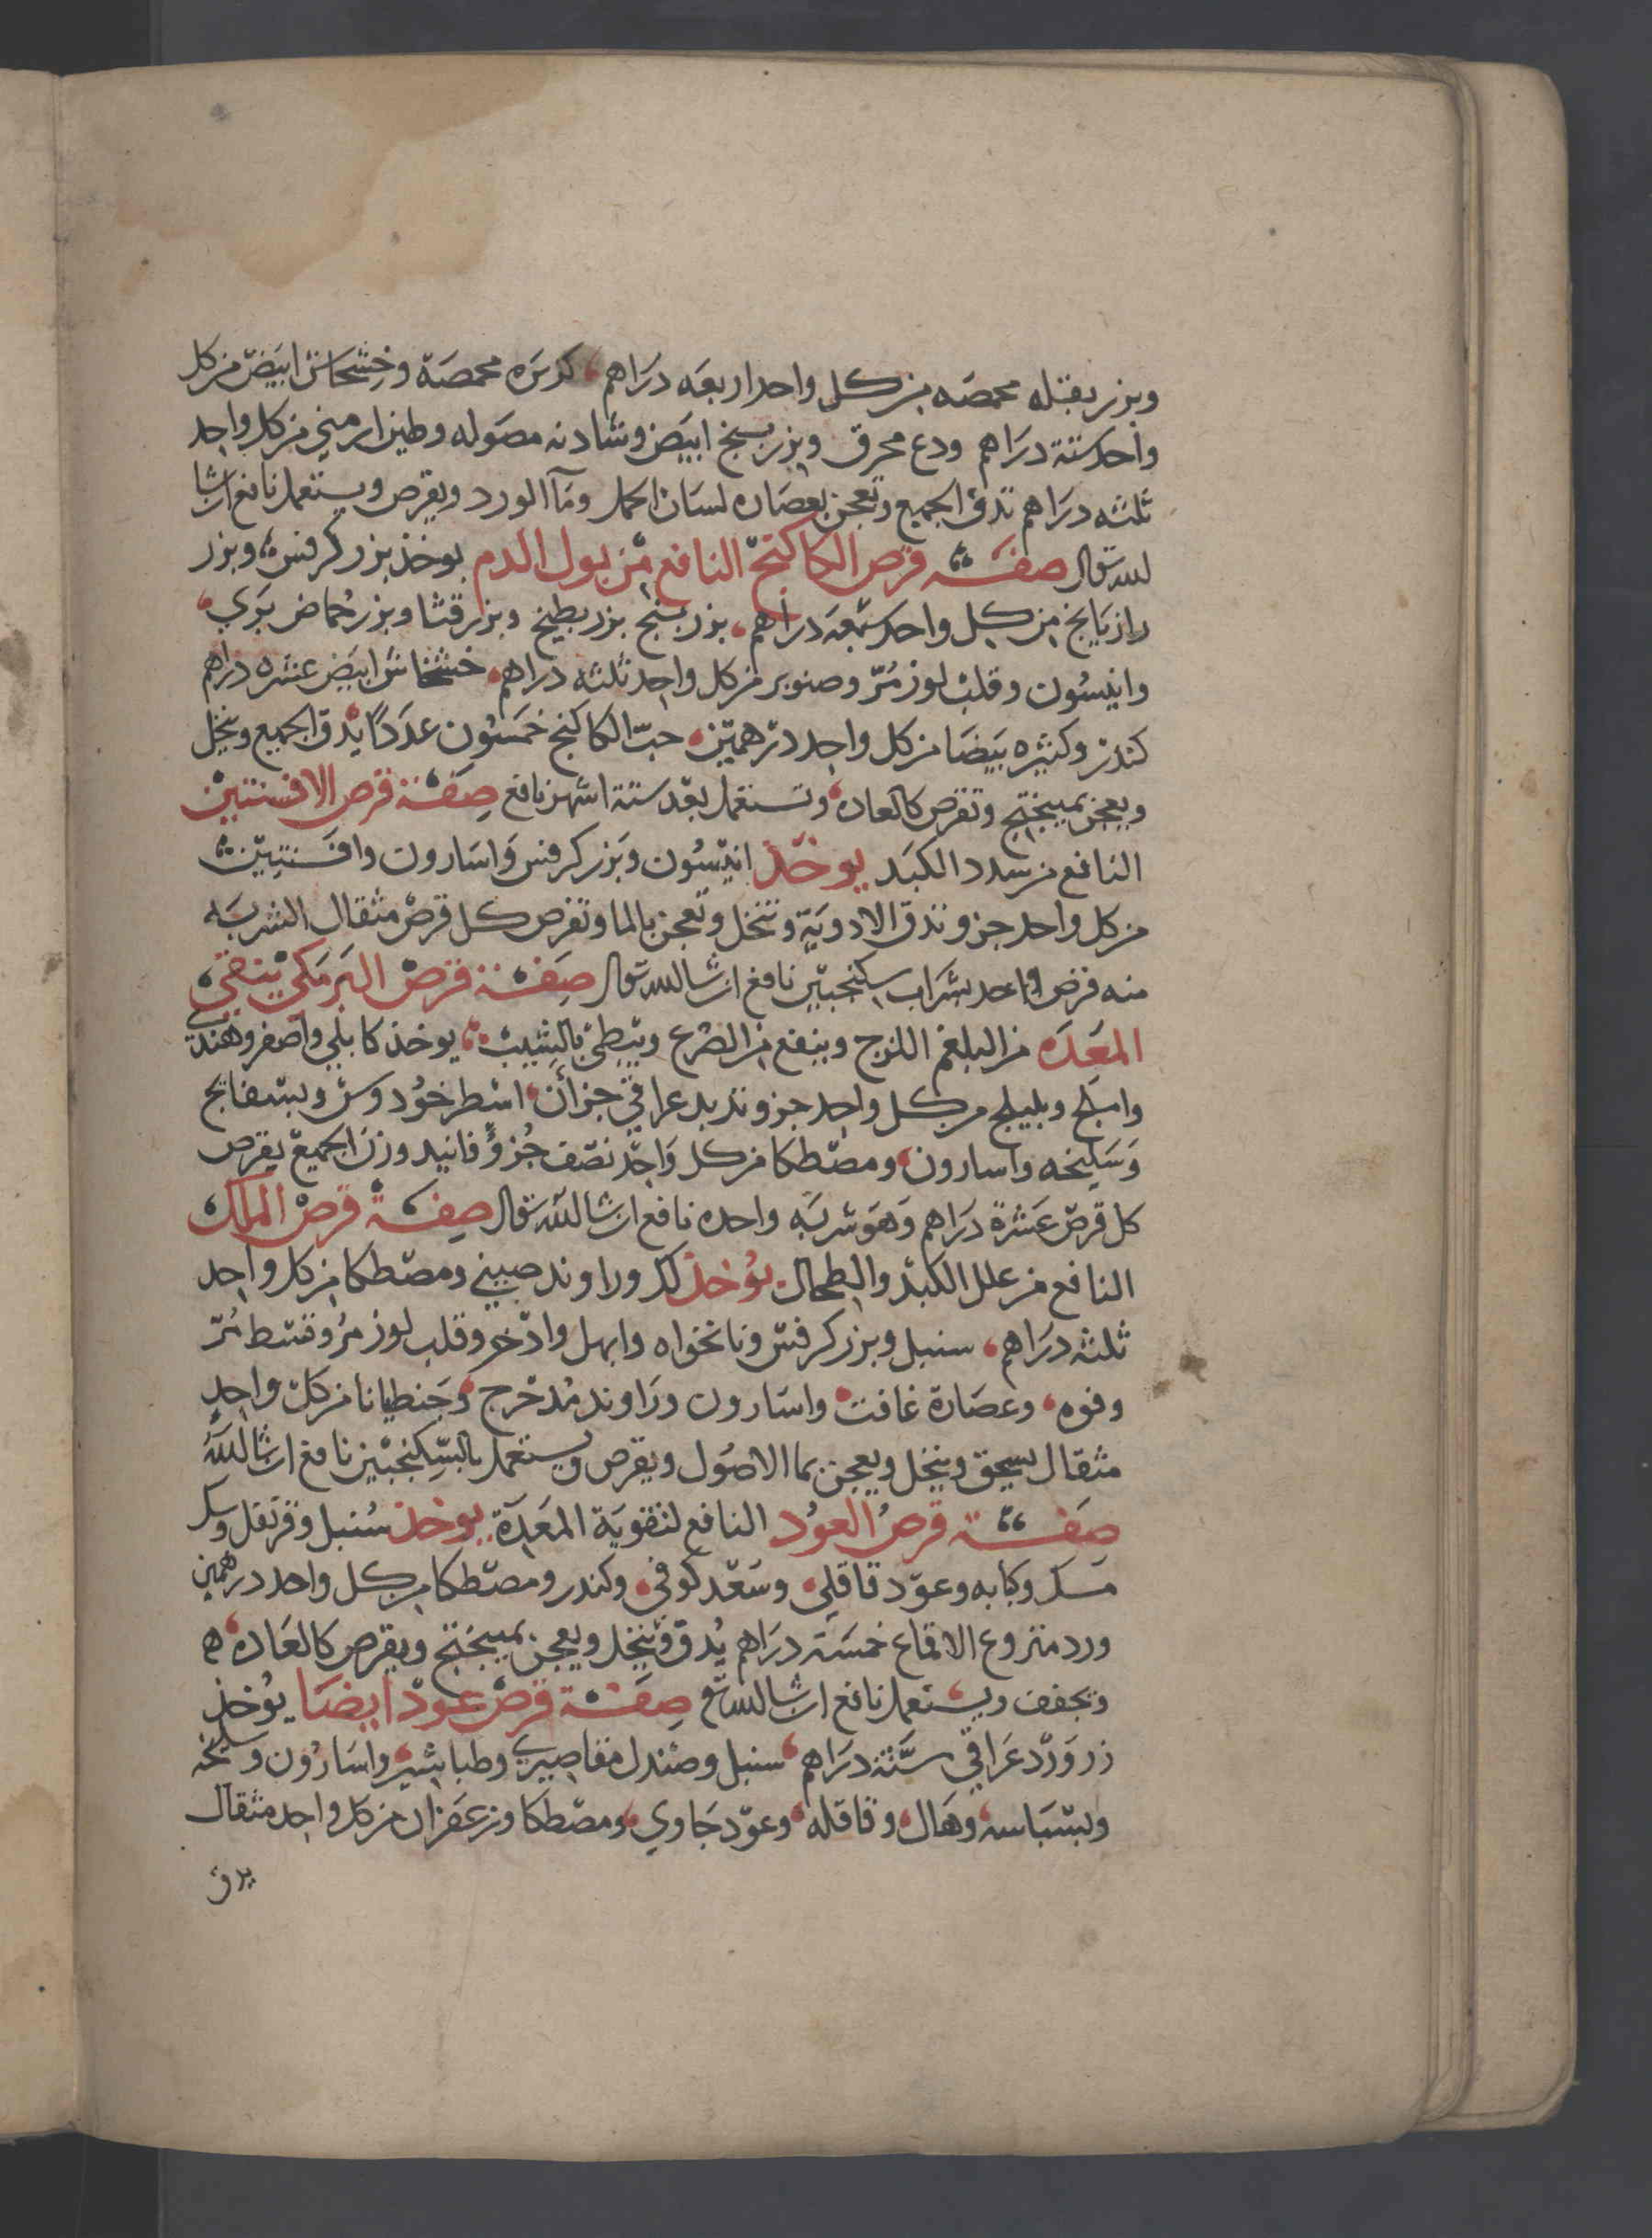 وبزر بقله محمصه من كل واحد اربعه دراهم، كزبره محمصة وخشخاش ابيض من كل
واحد ستة دراهم ودع محرق وبزر بنج ابيض وشادنه مصوله وطين ارمني من كل واحد
ثلثه دراهم تدق الجميع وتعجن بعصاره لسان الحمل ومآ الورد ويقرص ويستعمل نافع ان شا
لله تعال صفة قرص الكاكنج النافع من بول الدم يوخذ بزر كرفس، وبزر
رازيانج من كل واحد سبعه دراهم، بزر بنج بزر بطيخ وبزر قثا وبزر حماض بري،
وانيسون وقلب لوز مُرّ وصنوبر من كل واحد ثلثه دراهم، خشخاش ابيض عشره دراهم
كندر وكثيره بيضا من كل واحد درهمين، حبّ الكاكنج خمسون عددًا يدق الجميع وينخل
ويعجن بميبختج وتقرص كالعاده، وتستعمل بعد ستة اشهر نافع صفة قرص الافسنتين
النافع من سدد الكبد يوخذ انيسون وبزر كرفس واسارون وافسنتين
من كل واحد جزو تدق الادوية وتنخل وتعجن بالما وتقرص كل قرص مثقال الشربه
منه قرص واحد بشراب سكنجبين نافع ان شا لله تعال صفة قرص البرمكي ينقي
المعده من البلغم اللزج وينفع من الصرع ويبطئ بالشيب، يوخذ كابلي واصفر وهندي
واملج وبليلج من كل واحد جزو تربد عراقي جزأن، اسطوخودوس وبسفايج
وسليخه واسارون، ومصطكا من كل واحد نصف جُزؤ فانيد وزن الجميع يقرص
كل قرص عشرة دراهم وهو شربه واحده نافع ان شا لله تعال صفة قرص الملك
النافع من علل الكبد والطحال يوخذ لك وراوند صيني ومصطكا من كل واحد
ثلثه دراهم، سنبل وبزر كرفس ونانخواه وابهل واذخر وقلب لوز مُر وقسط مُرّ
وفوه، وعصارة غافت، واسارون وراوند مُدحرج، وجنطيانا من كل واحدٍ
مثقال يسحق وينخل ويعجن بما الاصول ويقرص ويستعمل بالسكنجبين نافع ان شا لله
صفة قرص العود النافع لتقويَة المعدة يوخذ سُنبل وقرنفل وسك
مسك وكبابه وعود قاقلي، وسعد كوفي، وكندر ومصطكا من كل واحد درهمين
ورد منزوع الاقماع خمسة دراهم يُدق وينخل ويعجن بميبختج ويقرص كالعاده، ه
وتجفف ويستعمل نافع ان شا لله تع صفة قرص عود ايضا يوخذ
زر ورد عراقي ستة دراهم، سنبل وصندل مقاصيري وطباشير، واسارون وسليخه
وبسباسه، وهال، وقاقله، وعود جاوي، ومصطكا وزعفران من كل واحد مثقال